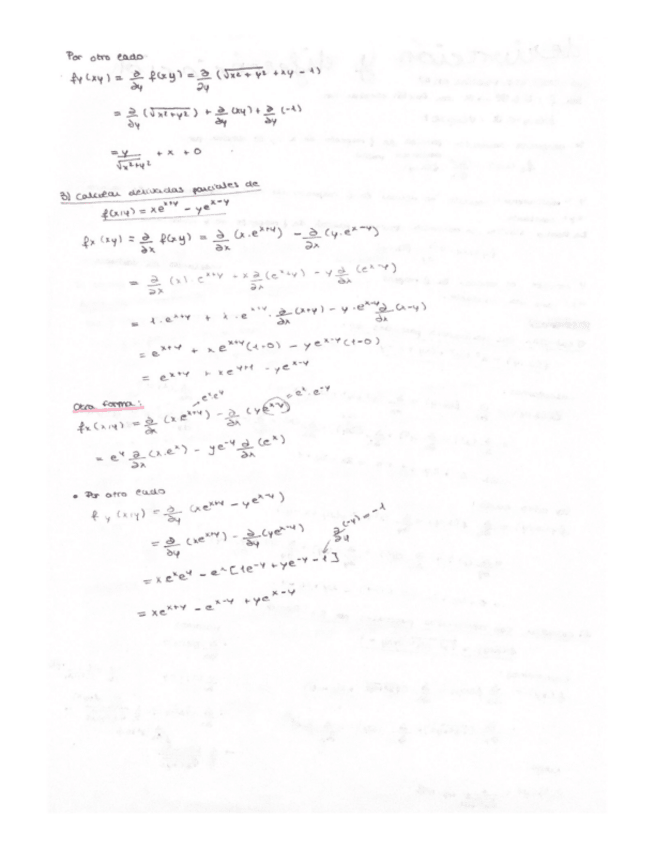 Por otro lado
fy(xy) = ∂/∂y f(xy) = ∂/∂y (√x²+y² + xy - 1)
= ∂/∂y (√x²+y²) + ∂/∂y (xy) + ∂/∂y (-1)
= y/√x²+y² + x + 0
3) Calcular derivadas parciales de
f(x,y) = xe^x+y - ye^x-y
fx (xy) = ∂/∂x f(xy) = ∂/∂x (x·e^x+y) - ∂/∂x (y·e^x-y)
= ∂/∂x (x)·e^x+y + x ∂/∂x (e^x+y) - y ∂/∂x (e^x-y)
= 1·e^x+y + x·e^x+y · ∂/∂x (x+y) - y·e^x-y ∂/∂x (x-y)
= e^x+y + xe^x+y (1-0) - ye^x-y (1-0)
= e^x+y + xe^y+x - ye^x-y
Otra forma:
e^x e^y
= e^x·e^-y
fx(x,y) = ∂/∂x (xe^x+y) - ∂/∂x (ye^x-y)
= e^y ∂/∂x (x·e^x) - ye^-y ∂/∂x (e^x)
• Por otro lado
fy(x,y) = ∂/∂y (xe^x+y - ye^x-y)
= ∂/∂y (xe^x+y) - ∂/∂y (ye^x-y)
∂/∂y (-y) = -1
= xe^x e^y - e^x [1e^-y + ye^-y - 1]
= xe^x+y - e^x-y + ye^x-y